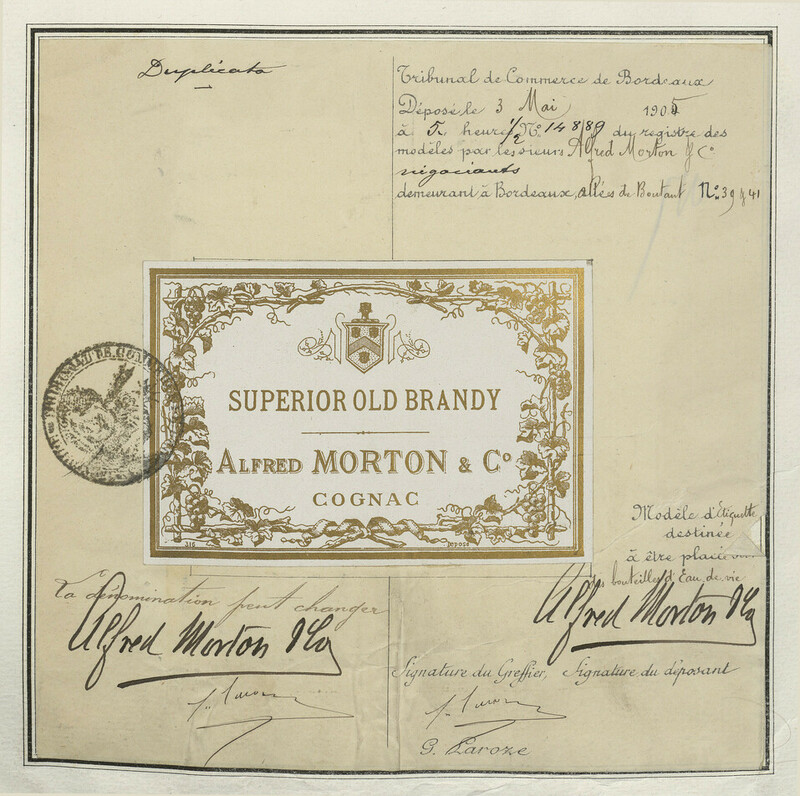 Duplicata
Tribunal de Commerce de Bordeaux
Déposé le 3 Mai 1905
à 5 heures 1/2 N° 14889 du registre des
modèles par les sieurs Alfred Morton & Co
négociants
demeurant à Bordeaux, allées de Boutaut N° 39 & 41
SUPERIOR OLD BRANDY
ALFRED MORTON & Co
COGNAC
316
DÉPOSÉ
Modèle d'Étiquette
destinée
à être placée sur
des bouteilles d'Eau de vie
La dénomination peut changer
Alfred Morton & Co
Alfred Morton & Co
Signature du Greffier, Signature du déposant
G. Laroze